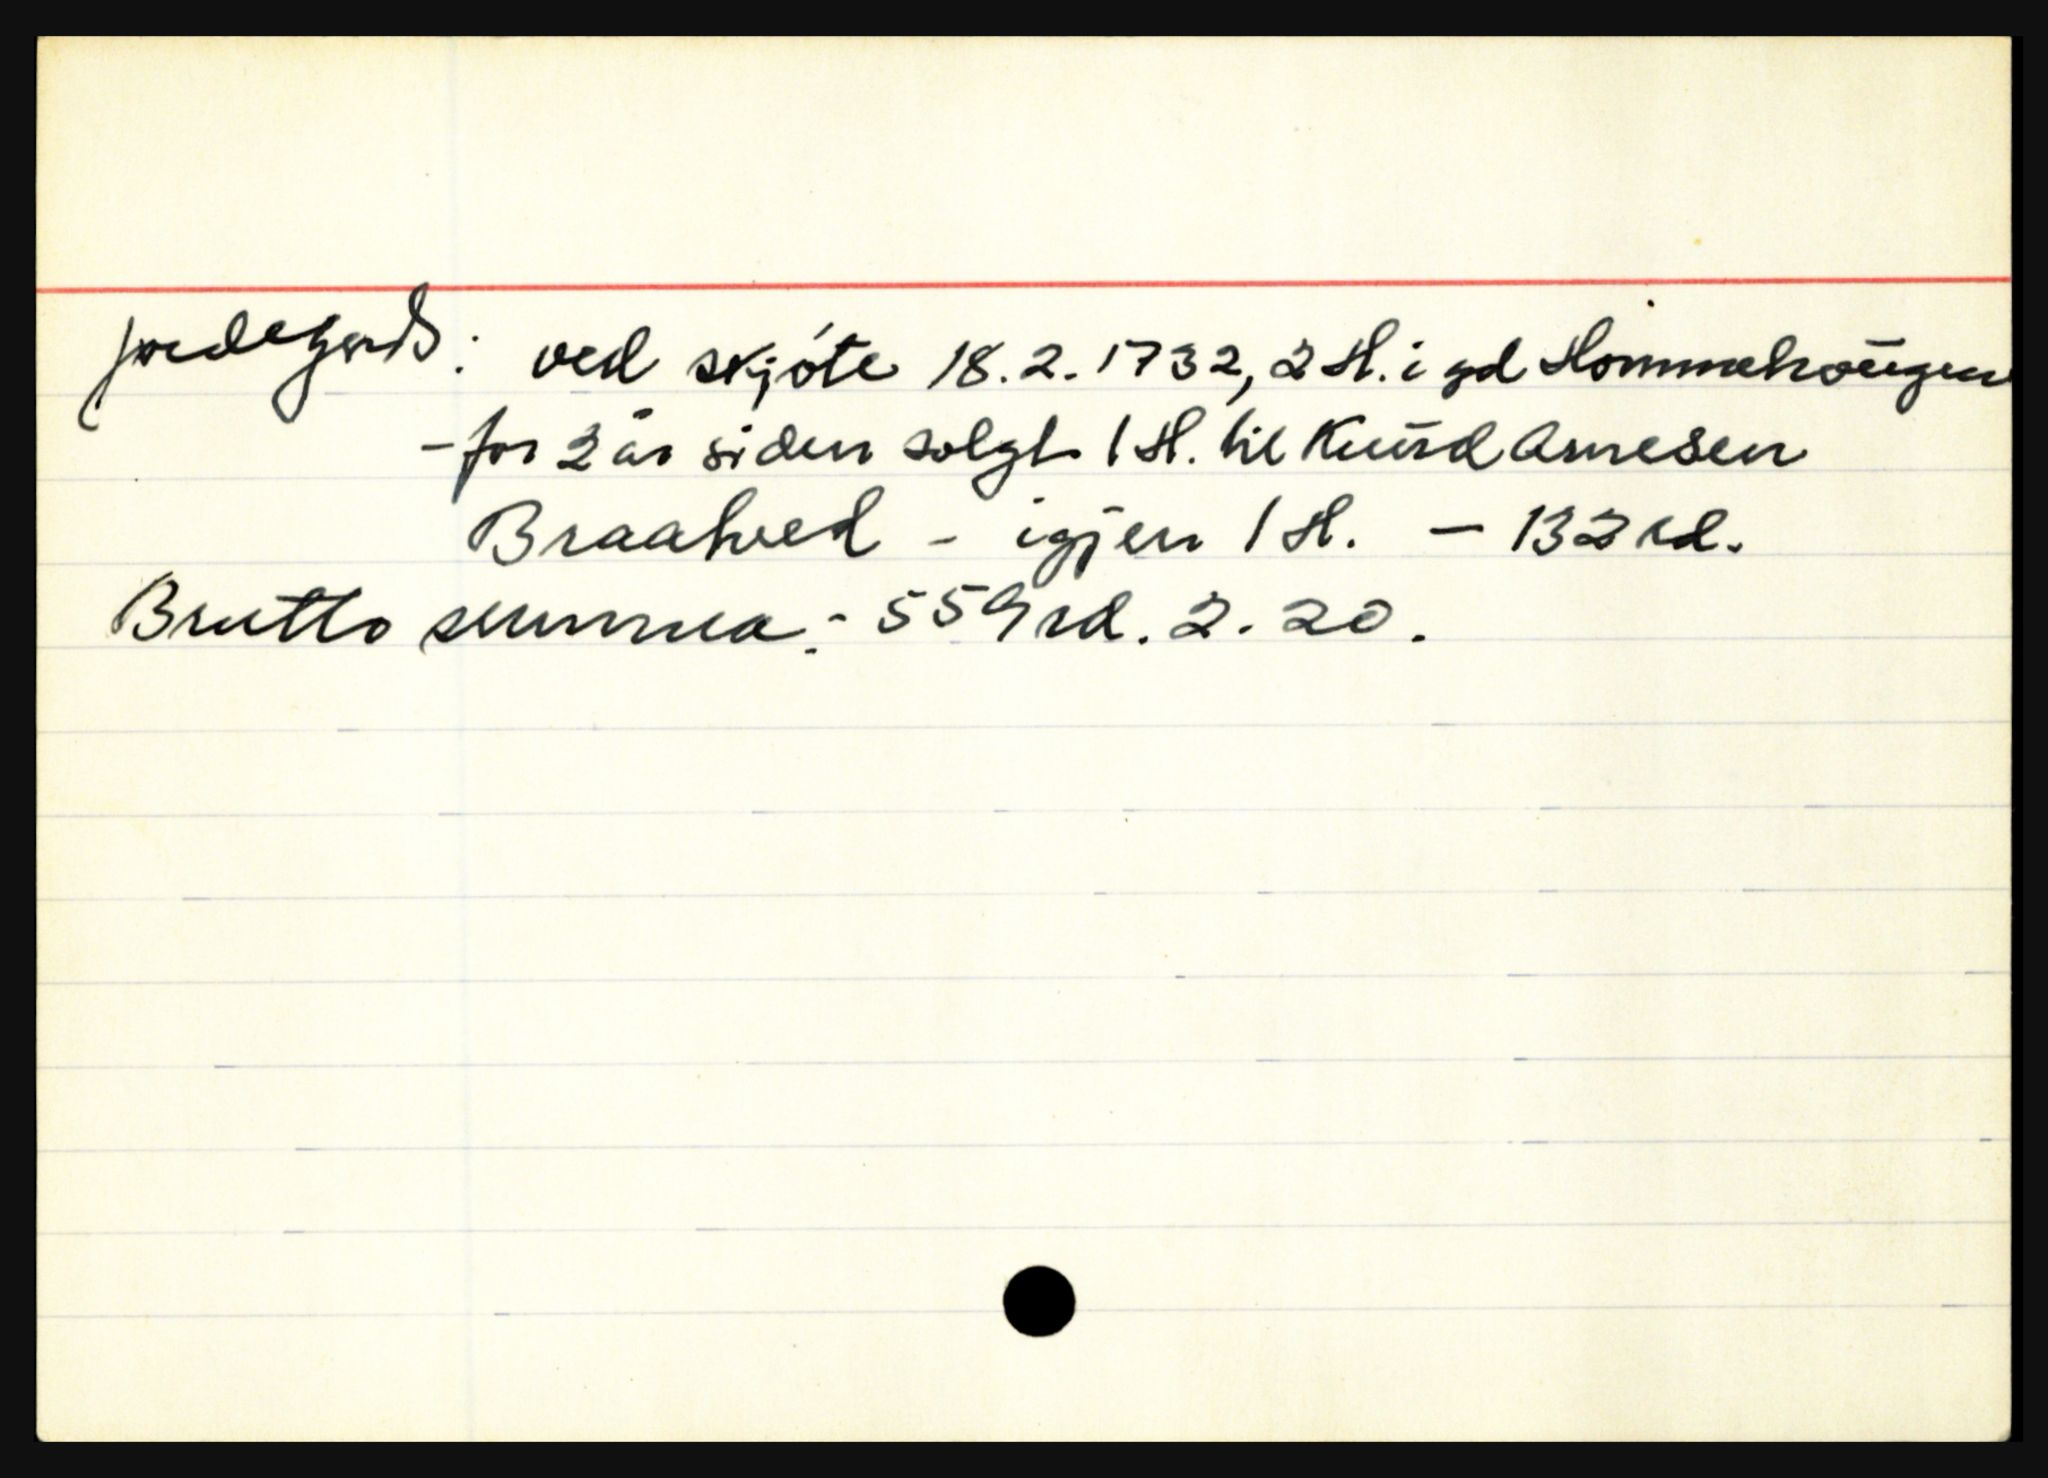 jordegods: ved skjöte 18.2.1732, 2 H. i gd Hommehougen
- for 2 år siden solgt 1 H. til Knud Arnesen
Braatved - igjen 1 H. - 132 rd.
Brutto summa:- 559 rd. 2. 20.